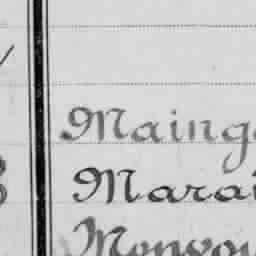 Maing
Marai
Monvou